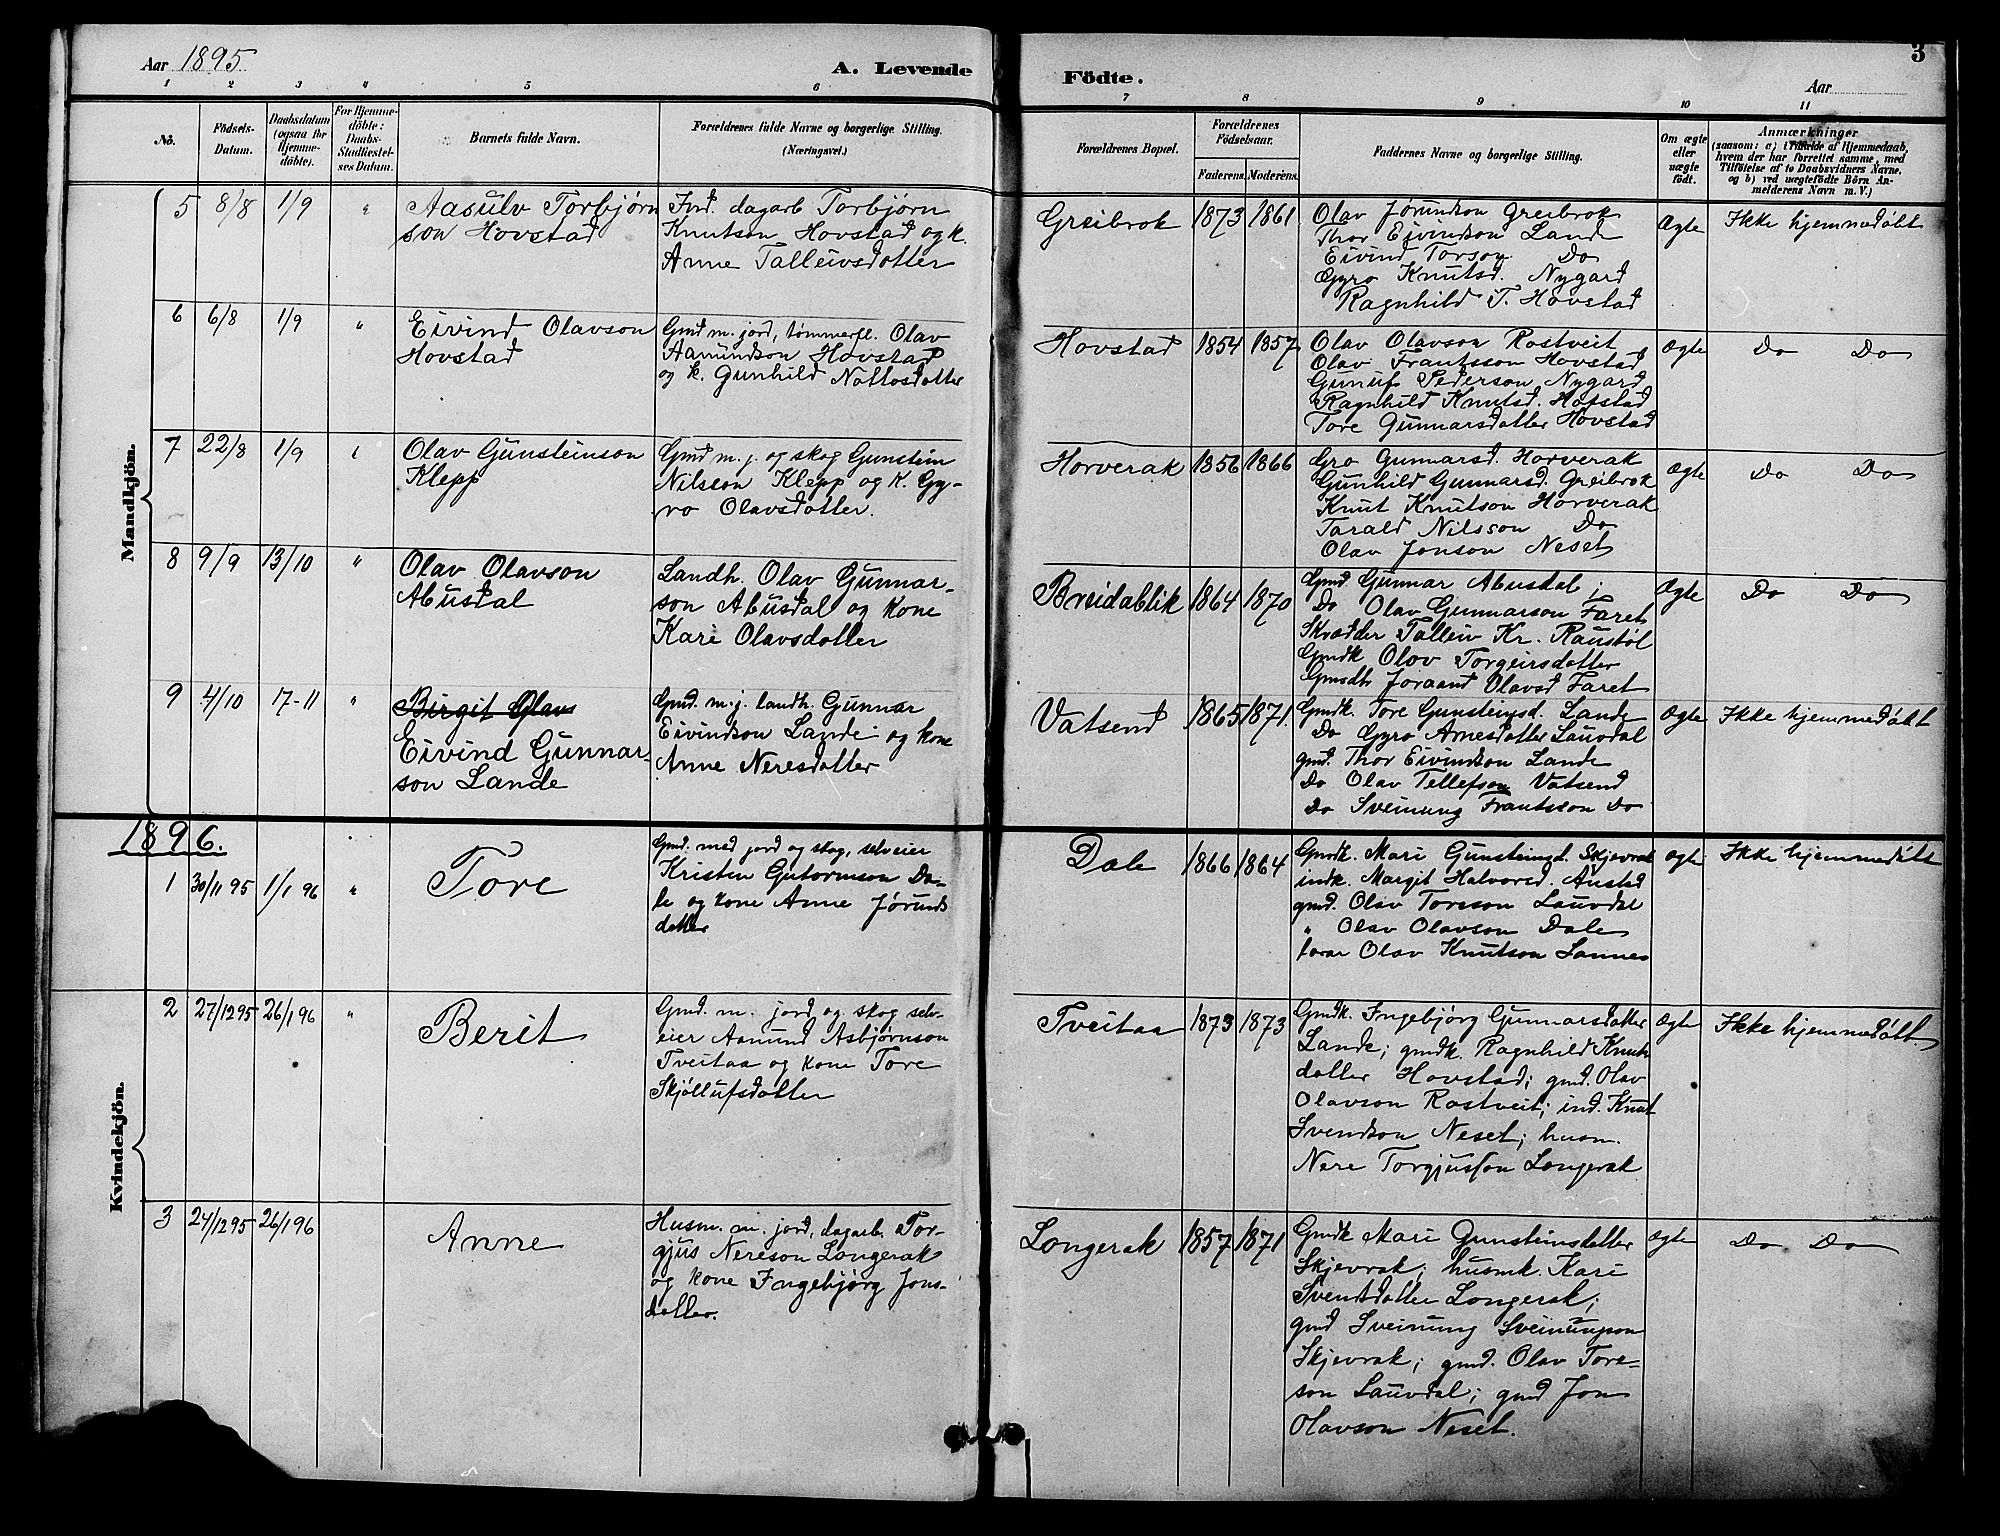 Aar 1895
A. Levende
Födte.
3
Aar
1 2 3 4 5 6 7 8 9 10 11
No.
Födsels-
Datum.
Daabsdatum
(ogsaa for
Hjemme-
döbte).
For Hjemme-
döbte:
Daabs-
Stadfæstel-
ses Datum.
Barnets fulde Navn.
Forældrenes fulde Navne og borgerlige Stilling.
(Næringsvei.)
Forældrenes Bopæl.
Forældrenes
Födselsaar.
Faderens. Moderens.
Faddernes Navne og borgerlige Stilling.
Om ægte
eller
uægte
födt.
Anmærkninger
(saasom: a) i Tilfælde af Hjemmedaab,
hvem der har forrettet samme, med
Tilföielse af to Daabsvidners Navne,
og b) ved uægtefödte Börn An-
melderens Navn m. V.)
Mandkjön.
5 8/8 1/9 "
Aasulv Torbjørn
son Hovstad
Ind. dagarb Torbjørn
Knutson Hovstad og k.
Anne Talleivsdotter
Greibrok 1873 1861
Olav Jørundson Greibrok
Thor Eivindson Lande
Eivind Torson Do
Gyro Knutsd. Nygard
Ragnhild T. Hovstad
Ægte
Ikke hjemmedøbt
6 6/8 1/9 "
Eivind Olavson
Hovstad
Gmd m. jord, tømmerfl. Olav
Aamundson Hovstad
og k. Gunhild Nottosdotter
Hovstad 1854 1857
Olav Olavson Rostveit
Olav Frantsson Hovstad
Gunuf Pederson Nygard
Ragnhild Knutsd. Hofstad
Tore Gunnarsdotter Hovstad
Ægte
Do Do
7 22/8 1/9
Olav Gunsteinson
Klepp
Gmd m. j. og skog Gunstein
Nilsson Klepp og K. Gy-
ro Olavsdotter.
Horverak 1856 1866
Gro Gunnarsd. Horverak
Gunhild Gunnarsd. Greibrok
Knut Knutson Horverak
Tarald Nilsson Do
Olav Jonson Neset
Ægte
Do Do
8 9/9 13/10 "
Olav Olavson
Abusdal
Landh. Olav Gunnar-
son Abusdal og kone
Kari Olavsdotter
Breidablik 1864 1870
Gmd. Gunnar Abusdal;
Do Olav Gunnarson Faret
Skrædder Talleiv Kr. Raustøl
Gmdk Olov Torgeirsdotter
Gmsdtr Joraand Olavsd Faret
Ægte
Do Do
9 4/10 17-11 "
Birgit Olavs
Eivind Gunnar-
son Lande
Gmd. m. j. landh. Gunnar
Eivindson Lande og kone
Anne Neresdotter
Vatsend 1865 1871.
Gmdk. Tore Gunsteinsd. Lande
Do Gyro Arnesdotter Lauvdal
gmd. Thor Eivindson Lande
Do Olav Tellefson Vatsend
Do Sveinung Frantsson Do
Ægte
Ikke hjemmedøbt
1896.
1 30/11 95 1/1 96 "
Tore
Gmd. med jord og skog, selveier
Kristen Gutormson Da-
le og kone Anne Jørunds
dotter
Dale 1866 1864
Gmdk. Mari Gunsteinsd. Skjevrak
indk. Margit Halvorsd. Austad
gmd. Olav Toreson Lauvdal
" Olav Olavson Dale
Olav Knutson Lannes
Ægte
Ikke hjemmedøbt
Kvindekjön.
2 27/12 95 26/1 96 "
Berit
Gmd. m. jord og skog selv-
eier Aamund Asbjørnson
Tveitaa og kone Tore
Skjøllufsdotter
Tveitaa 1873 1873
Gmdk. Ingebjørg Gunnarsdotter
Lande; gmdk. Ragnhild Knuts
dotter Hovstad; gmd. Olav
Olavson Rostveit; ind. Knut
Svendson Neset; husm.
Nere Torgjusson Longerak
Ægte
Ikke hjemmedøbt.
3 27/12 95 26/1 96
Anne
Husm. m. jord, dagarb. Tor-
gjus Nereson Longerak
og kone Ingebjørg Jons-
dotter.
Longerak 1857 1871
Gmdk Mari Gunsteinsdotter
Skjevrak; husmk. Kari
Svensdotter Longerak;
gmd Sveinung Sveinungson
Skjevrak; gmd. Olav Tore-
son Lauvdal; gmd Jon
Olavson Neset.
Ægte
Do Do